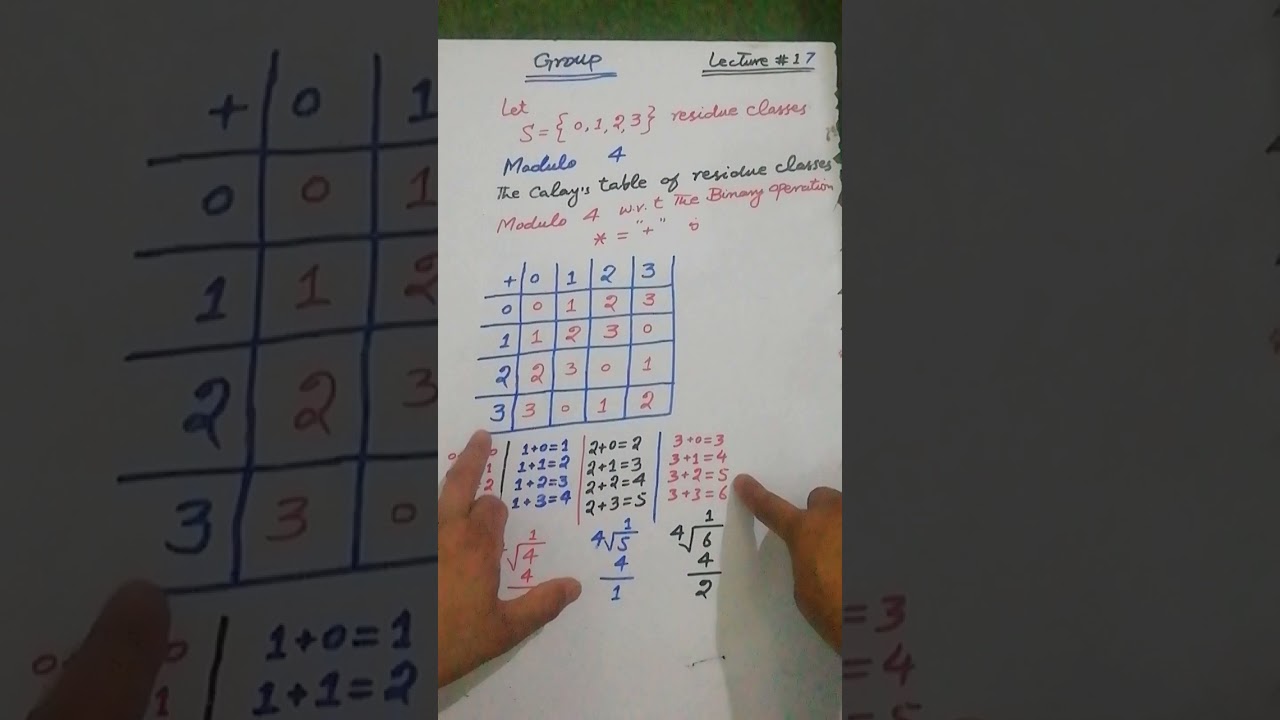 Group
Lecture # 17
Let
S = { 0, 1, 2, 3 } residue classes
Madulo 4
The Calay's table of residue classes
Modulo 4 w.r.t The Binary operation
* = "+" is
+ 0 1 2 3
0 0 1 2 3
1 1 2 3 0
2 2 3 0 1
3 3 0 1 2
1+0=1 2+0=2 3+0=3
1 1+1=2 2+1=3 3+1=4
2 1+2=3 2+2=4 3+2=5
1+3=4 2+3=5 3+3=6
1 1 1
√4 4√5 4√6
4 4 4
1 2